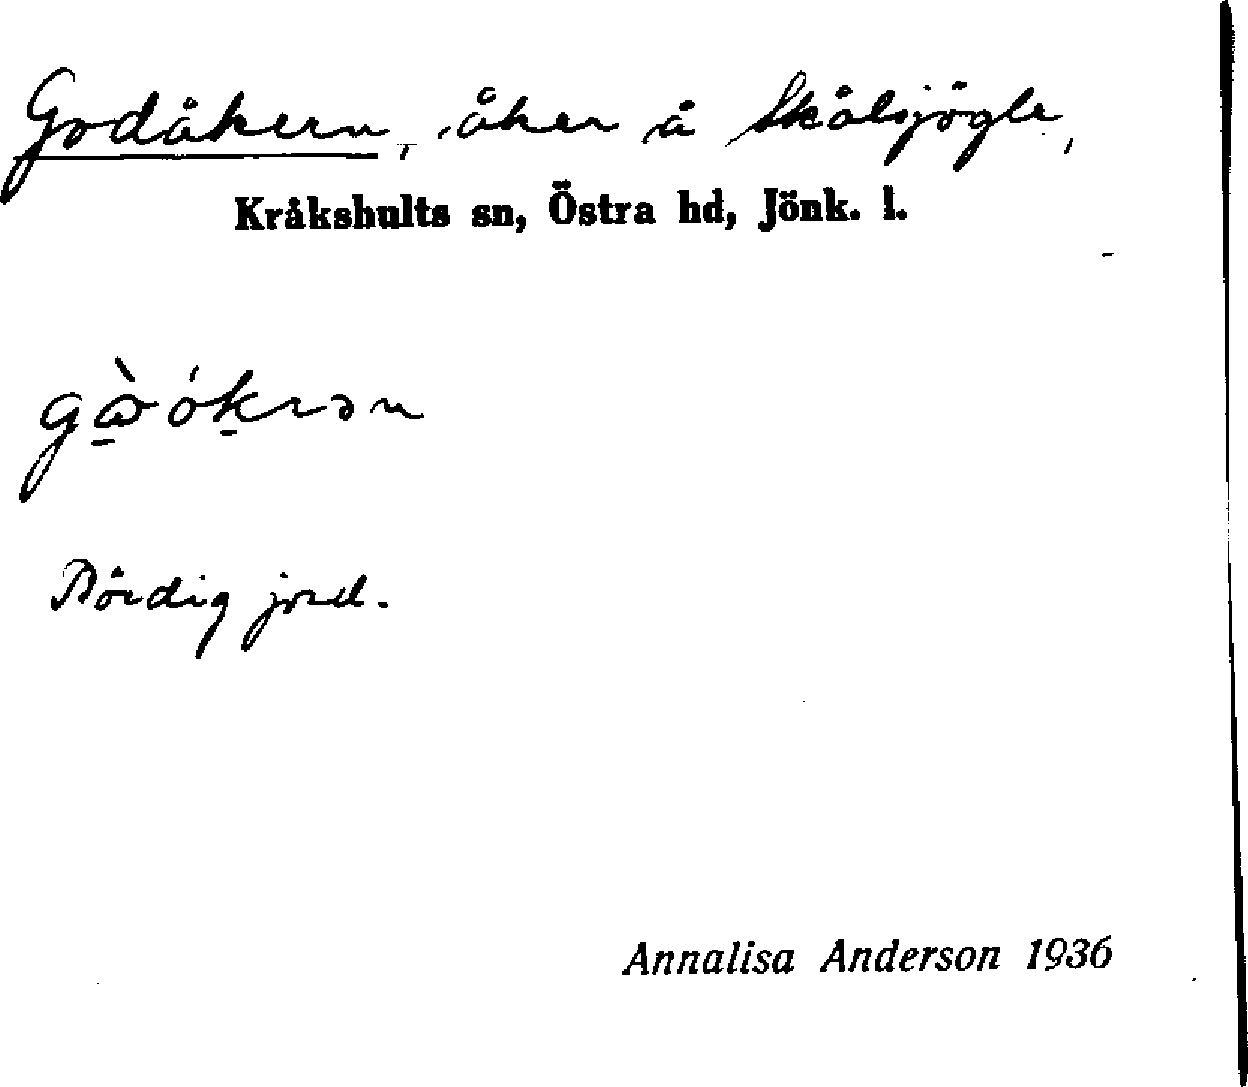 Godåkern, åker å Skälsjögle,
Kråkshults sn, Östra hd, Jönk. l.
Bördig jord.
Annalisa Anderson 1936